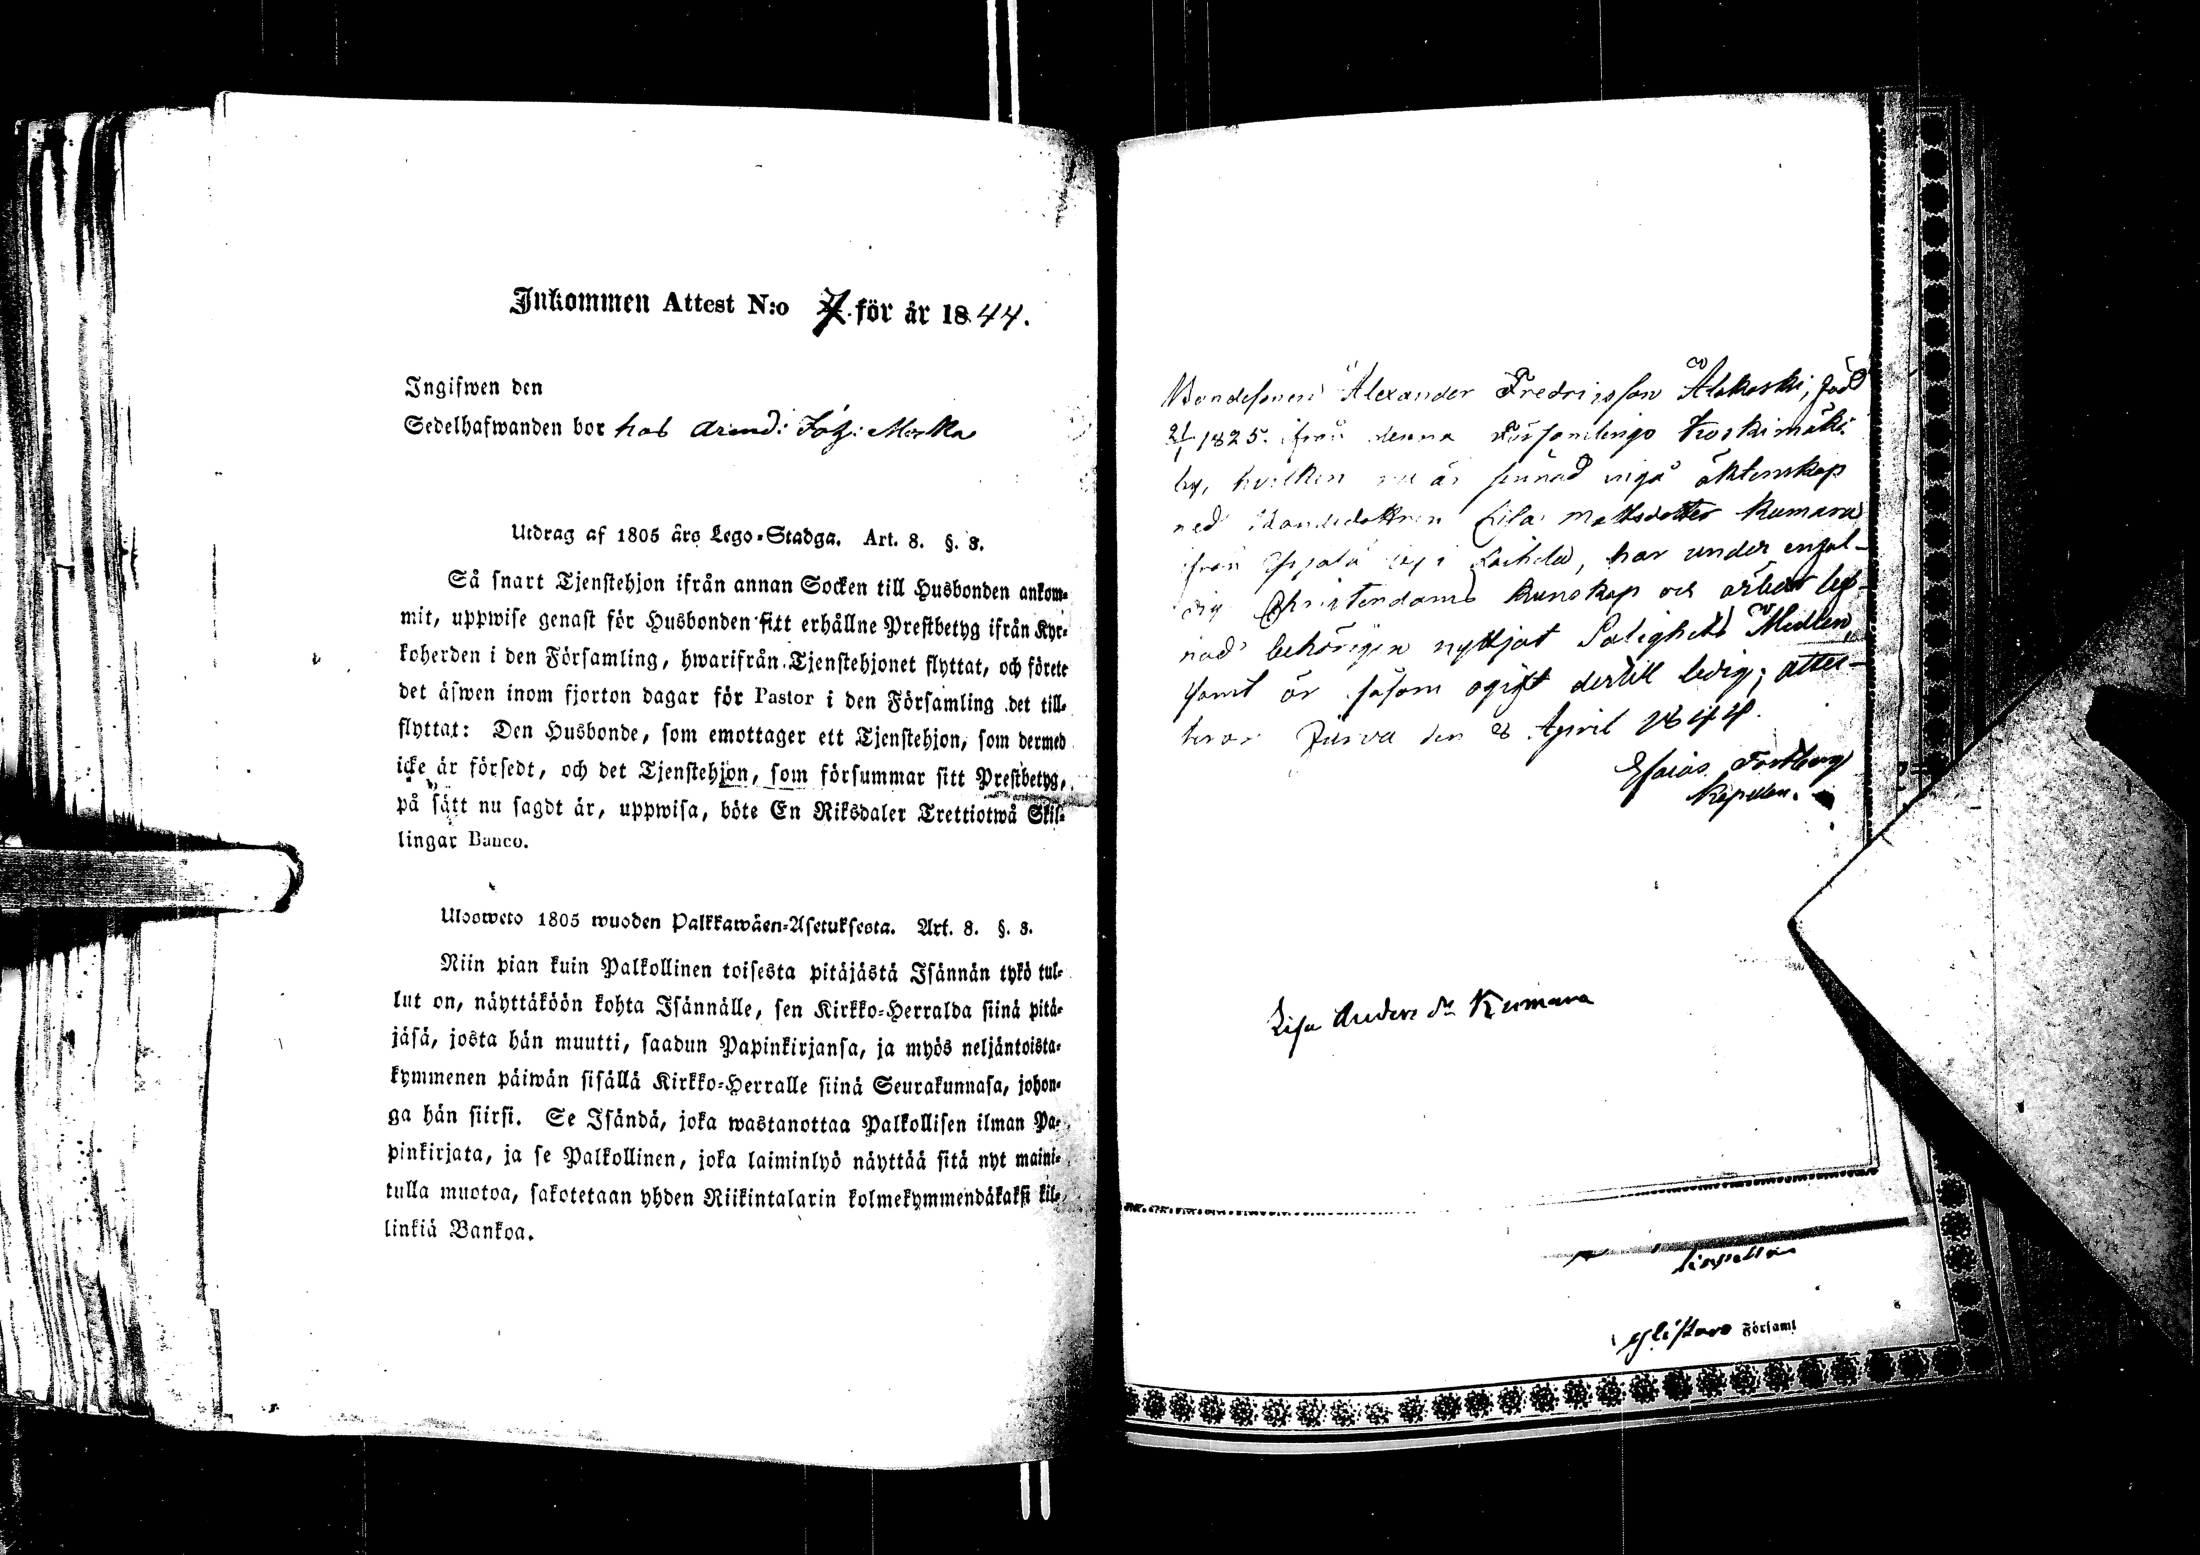 Inkommen Attest N:o 7. för år 1844.
Ingifwen den
Sedelhafwanden bor hos Arend:
Utdrag af 1805 års Lego-Stadga. Art. 8. §. 3.
Så snart Tjenstehjon ifrån annan Socken till Husbonden ankom-
mit, uppwise genast för Husbonden sitt erhållne Prestbetyg ifrån Kyr-
koherden i den Församling, hwarifrån Tjenstehjonet flyttat, och förete
det äfwen inom fjorton dagar för Pastor i den Församling det till-
flyttat: Den Husbonde, som emottager ett Tjenstehjon, som dermed
icke är försedt, och det Tjenstehjon, som försummar sitt Prestbetyg,
på sätt nu sagdt är, uppwisa, böte En Riksdaler Trettiotwå Skil-
lingar Banco.
Ulosweto 1805 wuoden Palkkawäen-Asetuksesta. Art. 8. §. 3.
Niin pian kuin Palkollinen toisesta pitäjästä Isännän tykö tul-
lut on, näyttäköön kohta Isännälle, sen Kirkko-Herralda siinä pitä-
jäsä, josta hän muutti, saadun Papinkirjansa, ja myös neljäntoista-
kymmenen päiwän sisällä Kirkko-Herralle siinä Seurakunnasa, johon-
ga hän siirsi. Se Isändä, joka wastanottaa Palkollisen ilman Pa-
pinkirjata, ja se Palkollinen, joka laiminlyö näyttää sitä nyt maini-
tulla muotoa, sakotetaan yhden Riikintalarin kolmekymmendäkaksi kil-
linkiä Bankoa.
Bondesonen Alexander Fredricsson Ålakoski, född
1825. ifrån denna Församlings Koskimäki
by, hvilken nu är sinnad ingå äktenskap
med Bondedottren Lisa Mattsdotter Kumara
ifrån by i Laihela, har under enfal-
dig Christendoms kunskap och ärbar lef-
nad behörigen nyttjat Salighets Medlen,
samt är såsom ogift dertill ledig; atte-
sterar Jurva den 28 April 1844.
Esaias
Kapellan.
Lisa Anders dr Kumara
Församl